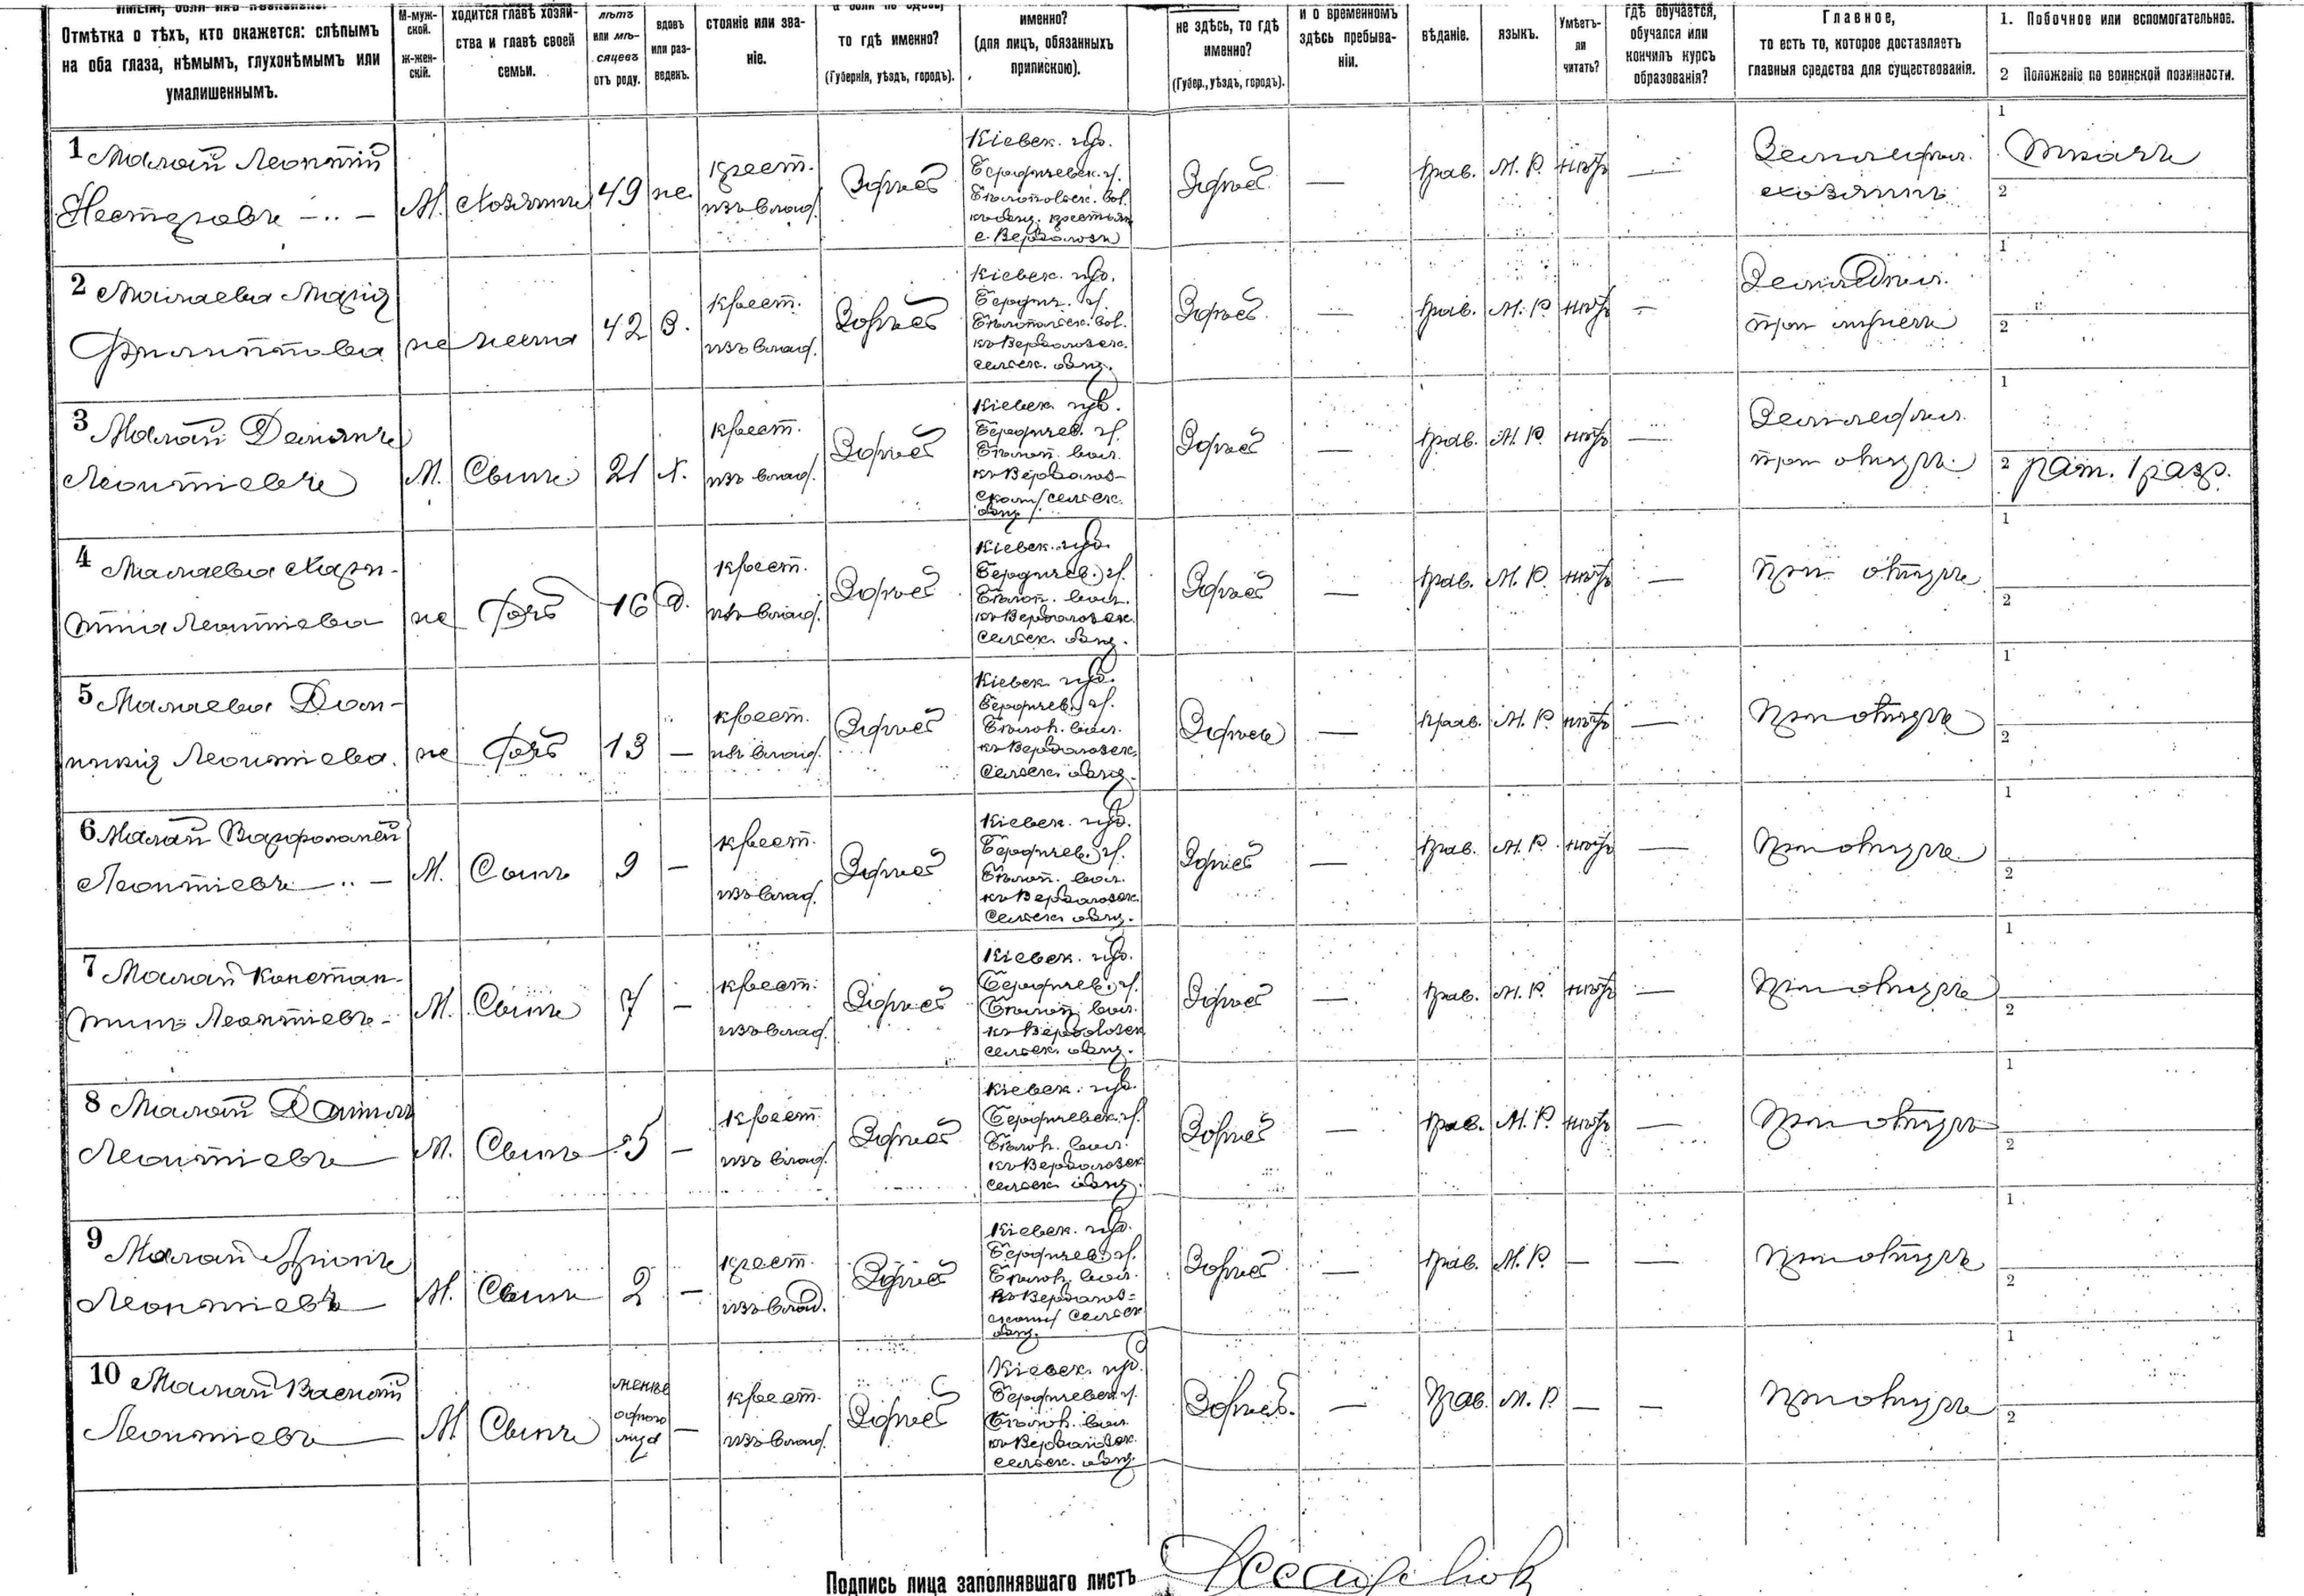 Отмѣтка о тѣхъ, кто окажется: слѣпымъ
на оба глаза, нѣмымъ, глухонѣмымъ или
умалишеннымъ.
М-муж-
ской.
Ж-жен-
скій.
ходится главѣ хозяй-
ства и главѣ своей
семьи.
лѣтъ
или мѣ-
сяцевъ
отъ роду.
вдовъ
или раз-
веденъ.
стояніе или зва-
ніе.
то гдѣ именно?
(Губернія, уѣздъ, городъ).
именно?
(для лицъ, обязанныхъ
припискою).
не здѣсь, то гдѣ
именно?
(Губер., уѣздъ, городъ).
и о временномъ
здѣсь пребыва-
ніи.
вѣданіе.
языкъ.
Умѣетъ-
ли
читать?
гдѣ обучается,
обучался или
кончилъ курсъ
образованія?
Главное,
то есть то, которое доставляетъ
главныя средства для существованія.
1. Побочное или вспомогательное.
2 Положеніе по воинской повинности.
1 Малай Леонтій
Нестеровъ
М.
Хозяинъ
49
же.
крест.
изъ влад.
Здѣсь
Кіевск. губ.
Бердичевск. у.
Бѣлопольск. вол.
къ общ. крестьян
с. Верболозы
Здѣсь
—
Прав.
М. Р.
нѣтъ
—
Земледѣл.
хозяинъ
1
Ткачъ
2
2 Малаева Марія
Филиппова
же
жена
42
З.
крест.
изъ влад.
Здѣсь
Кіевск. губ.
Бердич. у.
Бѣлопольск. вол.
къ Верболозск.
сельск. общ.
Здѣсь
—
Прав.
М. Р.
нѣтъ
—
Земледѣл.
при мужѣ
1
2
3 Малай Демьянъ
Леонтіевъ
М.
Сынъ
21
Х.
крест.
изъ влад.
Здѣсь
Кіевск. губ.
Бердичев. у.
Бѣлоп. вол.
къ Верболоз-
скому сельск.
общ.
Здѣсь
—
Прав.
М. Р.
нѣтъ
—
Земледѣл.
при отцѣ
1
2 рат. 1 разр.
4 Малаева Хари-
тина Леонтіева
же
дочь
16
Д.
крест.
изъ влад.
Здѣсь
Кіевск. губ.
Бердичев. у.
Бѣлоп. вол.
къ Верболозск.
сельск. общ.
Здѣсь
—
Прав.
М. Р.
нѣтъ
—
При отцѣ
1
2
5 Малаева Дом-
никія Леонтіева.
же
дочь
13
—
крест.
изъ влад.
Здѣсь
Кіевск. губ.
Бердичев. у.
Бѣлоп. вол.
къ Верболозск.
сельск. общ.
Здѣсь
—
Прав.
М. Р.
нѣтъ
—
При отцѣ
1
2
6 Малай Варфоломей
Леонтіевъ
М.
Сынъ
9
—
крест.
изъ влад.
Здѣсь
Кіевск. губ.
Бердичев. у.
Бѣлоп. вол.
къ Верболозск.
сельск. общ.
Здѣсь
—
Прав.
М. Р.
нѣтъ
—
При отцѣ
1
2
7 Малай Констан-
тинъ Леонтіевъ
М.
Сынъ
7
—
крест.
изъ влад.
Здѣсь
Кіевск. губ.
Бердичев. у.
Бѣлоп. вол.
къ Верболозск
сельск. общ.
Здѣсь
—
Прав.
М. Р.
нѣтъ
—
При отцѣ
1
2
8 Малай Данилъ
Леонтіевъ
М.
Сынъ
5
—
крест.
изъ влад.
Здѣсь
Кіевск. губ.
Бердичевск. у.
Бѣлоп. вол.
къ Верболозск
сельск. общ.
Здѣсь
—
Прав.
М. Р.
нѣтъ
—
При отцѣ
1
2
9 Малай
Леонтіевъ
М.
Сынъ
2
—
крест.
изъ влад.
Здѣсь
Кіевск. губ.
Бердичев. у.
Бѣлоп. вол.
къ Верболоз-
скому сельск
общ.
Здѣсь
—
Прав.
М. Р.
—
—
При отцѣ
1
2
10 Малай Василій
Леонтіевъ
М
Сынъ
менѣе
одного
года
—
крест.
изъ влад.
Здѣсь
Кіевск. губ.
Бердичевск. у.
Бѣлоп. вол.
къ Верболозск.
сельск. общ.
Здѣсь.
—
Прав.
М. Р.
—
—
При отцѣ
1
2
Подпись лица заполнявшаго листъ